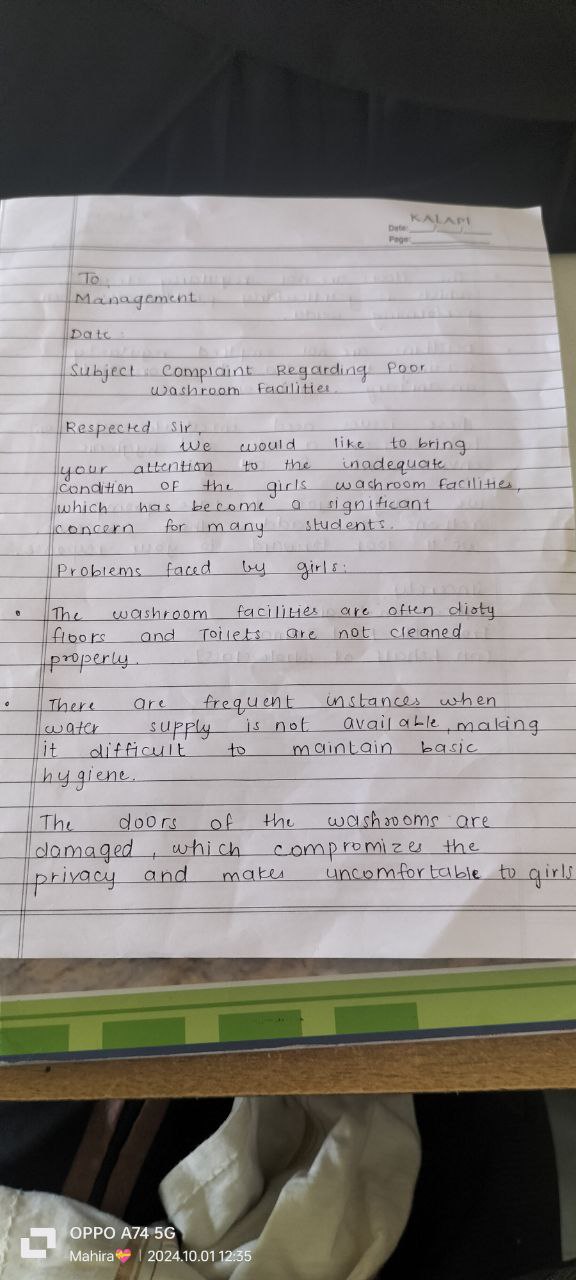 KALAPI
Date:
Page:
To,
Management
Date :
Subject : Complaint Regarding Poor
washroom facilities.
Respected Sir,
We would like to bring
your attention to the inadequate
condition of the girls washroom facilities,
which has become a significant
concern for many students.
Problems faced by girls:
• The washroom facilities are often dioty
floors and Toilets are not cleaned
properly.
• There are frequent instances when
water supply is not available, making
it difficult to maintain basic
hygiene.
The doors of the washrooms are
damaged, which compromizes the
privacy and makes uncomfortable to girls
OPPO A74 5G
Mahira💝 | 2024.10.01 12:35